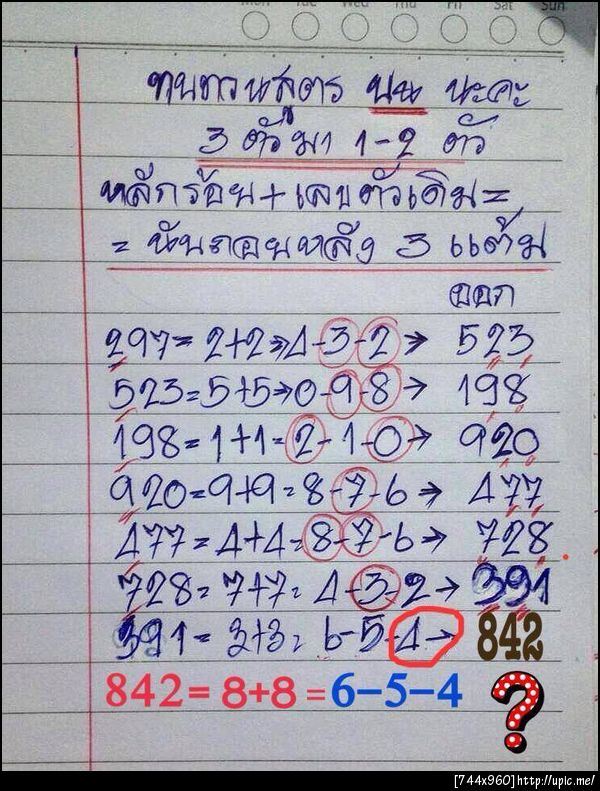 Mon Tue Wed Thu Fri Sat Sun
ทบทวนสูตร บน นะคะ
3 ตัวมา 1-2 ตัว
หลักร้อย+เลขตัวเดิม=
=นับถอยหลัง 3 แต้ม
ออก
297=2+2⇒4-3-2→ 523
523=5+5→0-9-8→ 198
198=1+1=2-1-0→ 920
920=9+9=8-7-6⇒ 477
477=4+4=8-7-6→ 728
728=7+7=4-3-2→ 391
391=3+3=6-5-4→ 842
842=8+8=6-5-4 ?
[744x960]http://upic.me/